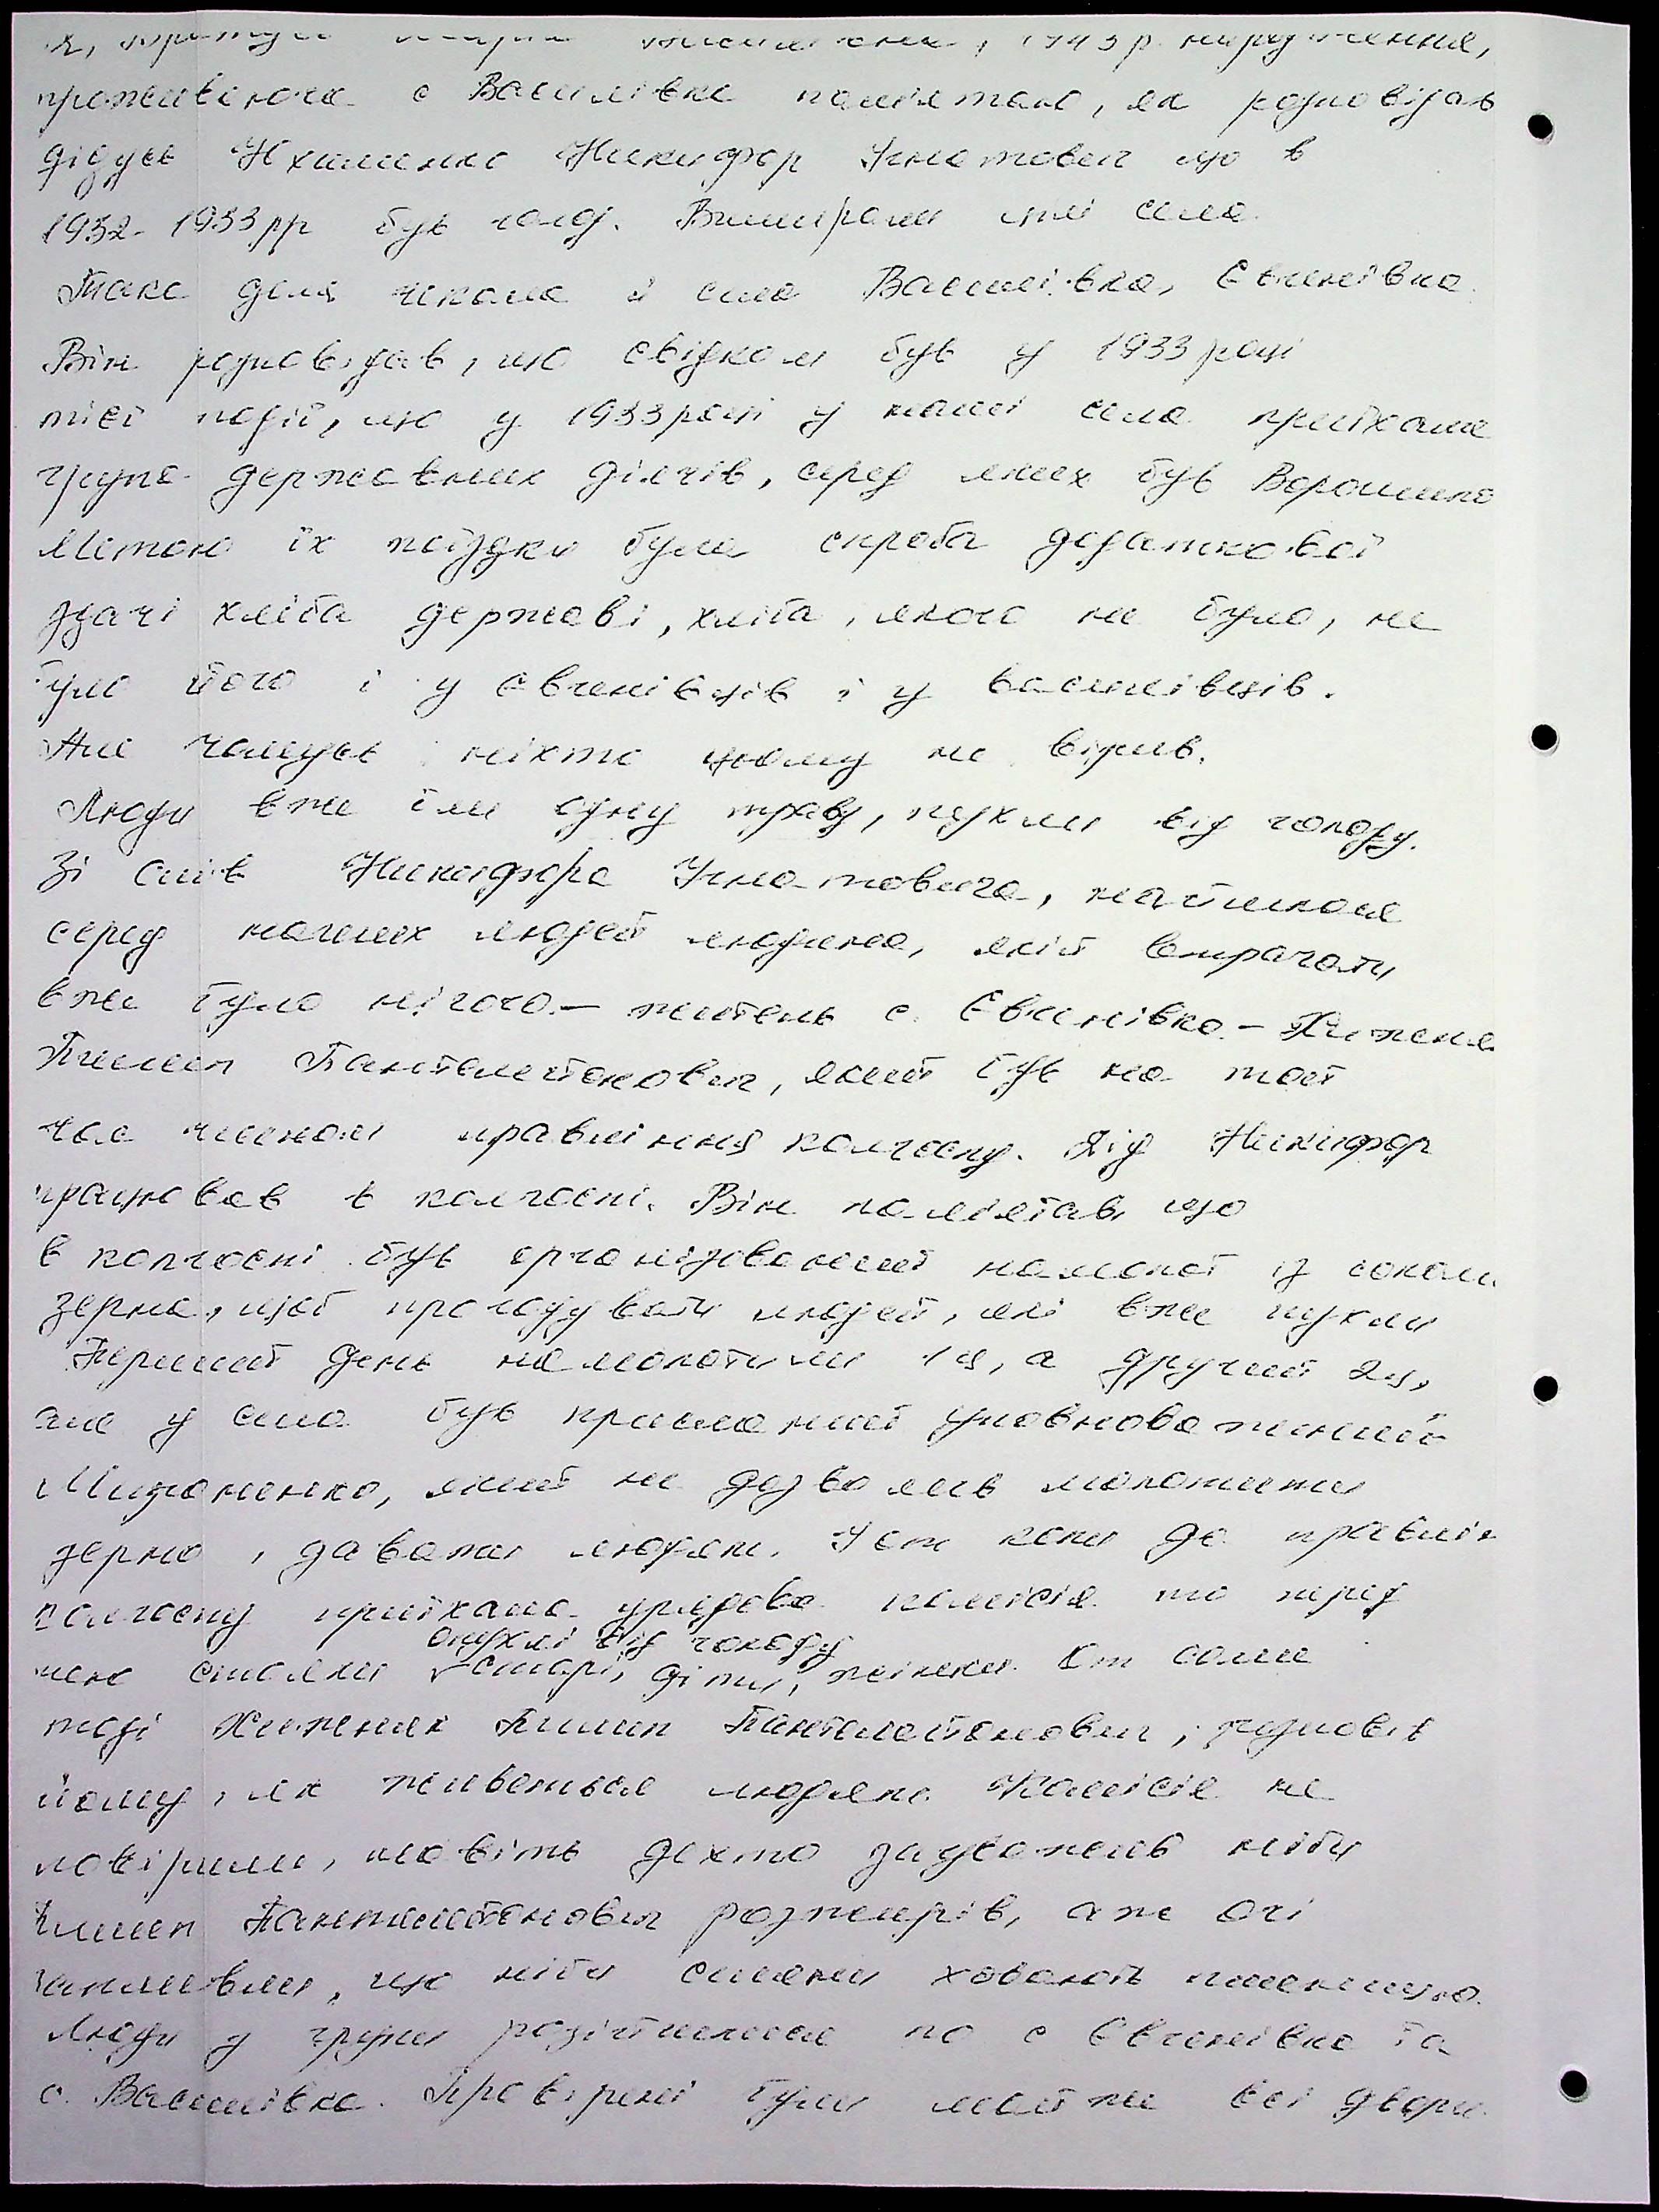 Я, 1943 р. народження,
проживаюча с Василівка пам'ятаю, як розповідав
дідусь Никифор Гнатович що в
1932-1933 рр був голод. Вимирали цілі села.
Така доля чекала й села Василівка, Євгенівка.
Він розповідав, що свідком був у 1933 році
тієї події, що у 1933 році у наші села приїхала
група державних діячів, серед яких був Ворошило
Метою їх поїздки була спроба додаткової
здачі хліба державі, хліба, якого не було, не
було його і у євгенівців і у василівців.
Але чомусь ніхто цьому не вірив.
Люди вже їли одну траву, пухли від голоду.
Зі слів Никифора Гнатовича, найшлася
серед наших людей людина, якій втрачати
вже було нічого - житель с. Євгенівка -
Пилип Пантелеймонович, який був на той
час членом правління колгоспу. Дід Никифор
працював в колгоспі. Він пам'ятав що
в колгоспі був організований намолот із
зерна, щоб прогодувати людей, які вже пухли
Перший день намолотили 1ц, а другий 2ц,
але у село був присланий уповноважений
Мироненко, який не дозволив молотити
зерно, давати людям. І от коли до правлін
колгоспу приїхала урядова комісія то перед
нею стояли √ опухлі від голоду старі, діти, жінки. От саме
тоді Пилип Пантелеймонович, розповів
йому, як живеться людям. Комісія не
повірили, навіть дехто зауважив ніби
Пилип Пантелеймонович розжирів, аж очі
запливли, що ніби селяни ховають пшеницю.
Люди у групи розійшлися по с Євгенівка та
с. Василівка. Провірені були майже всі двори.